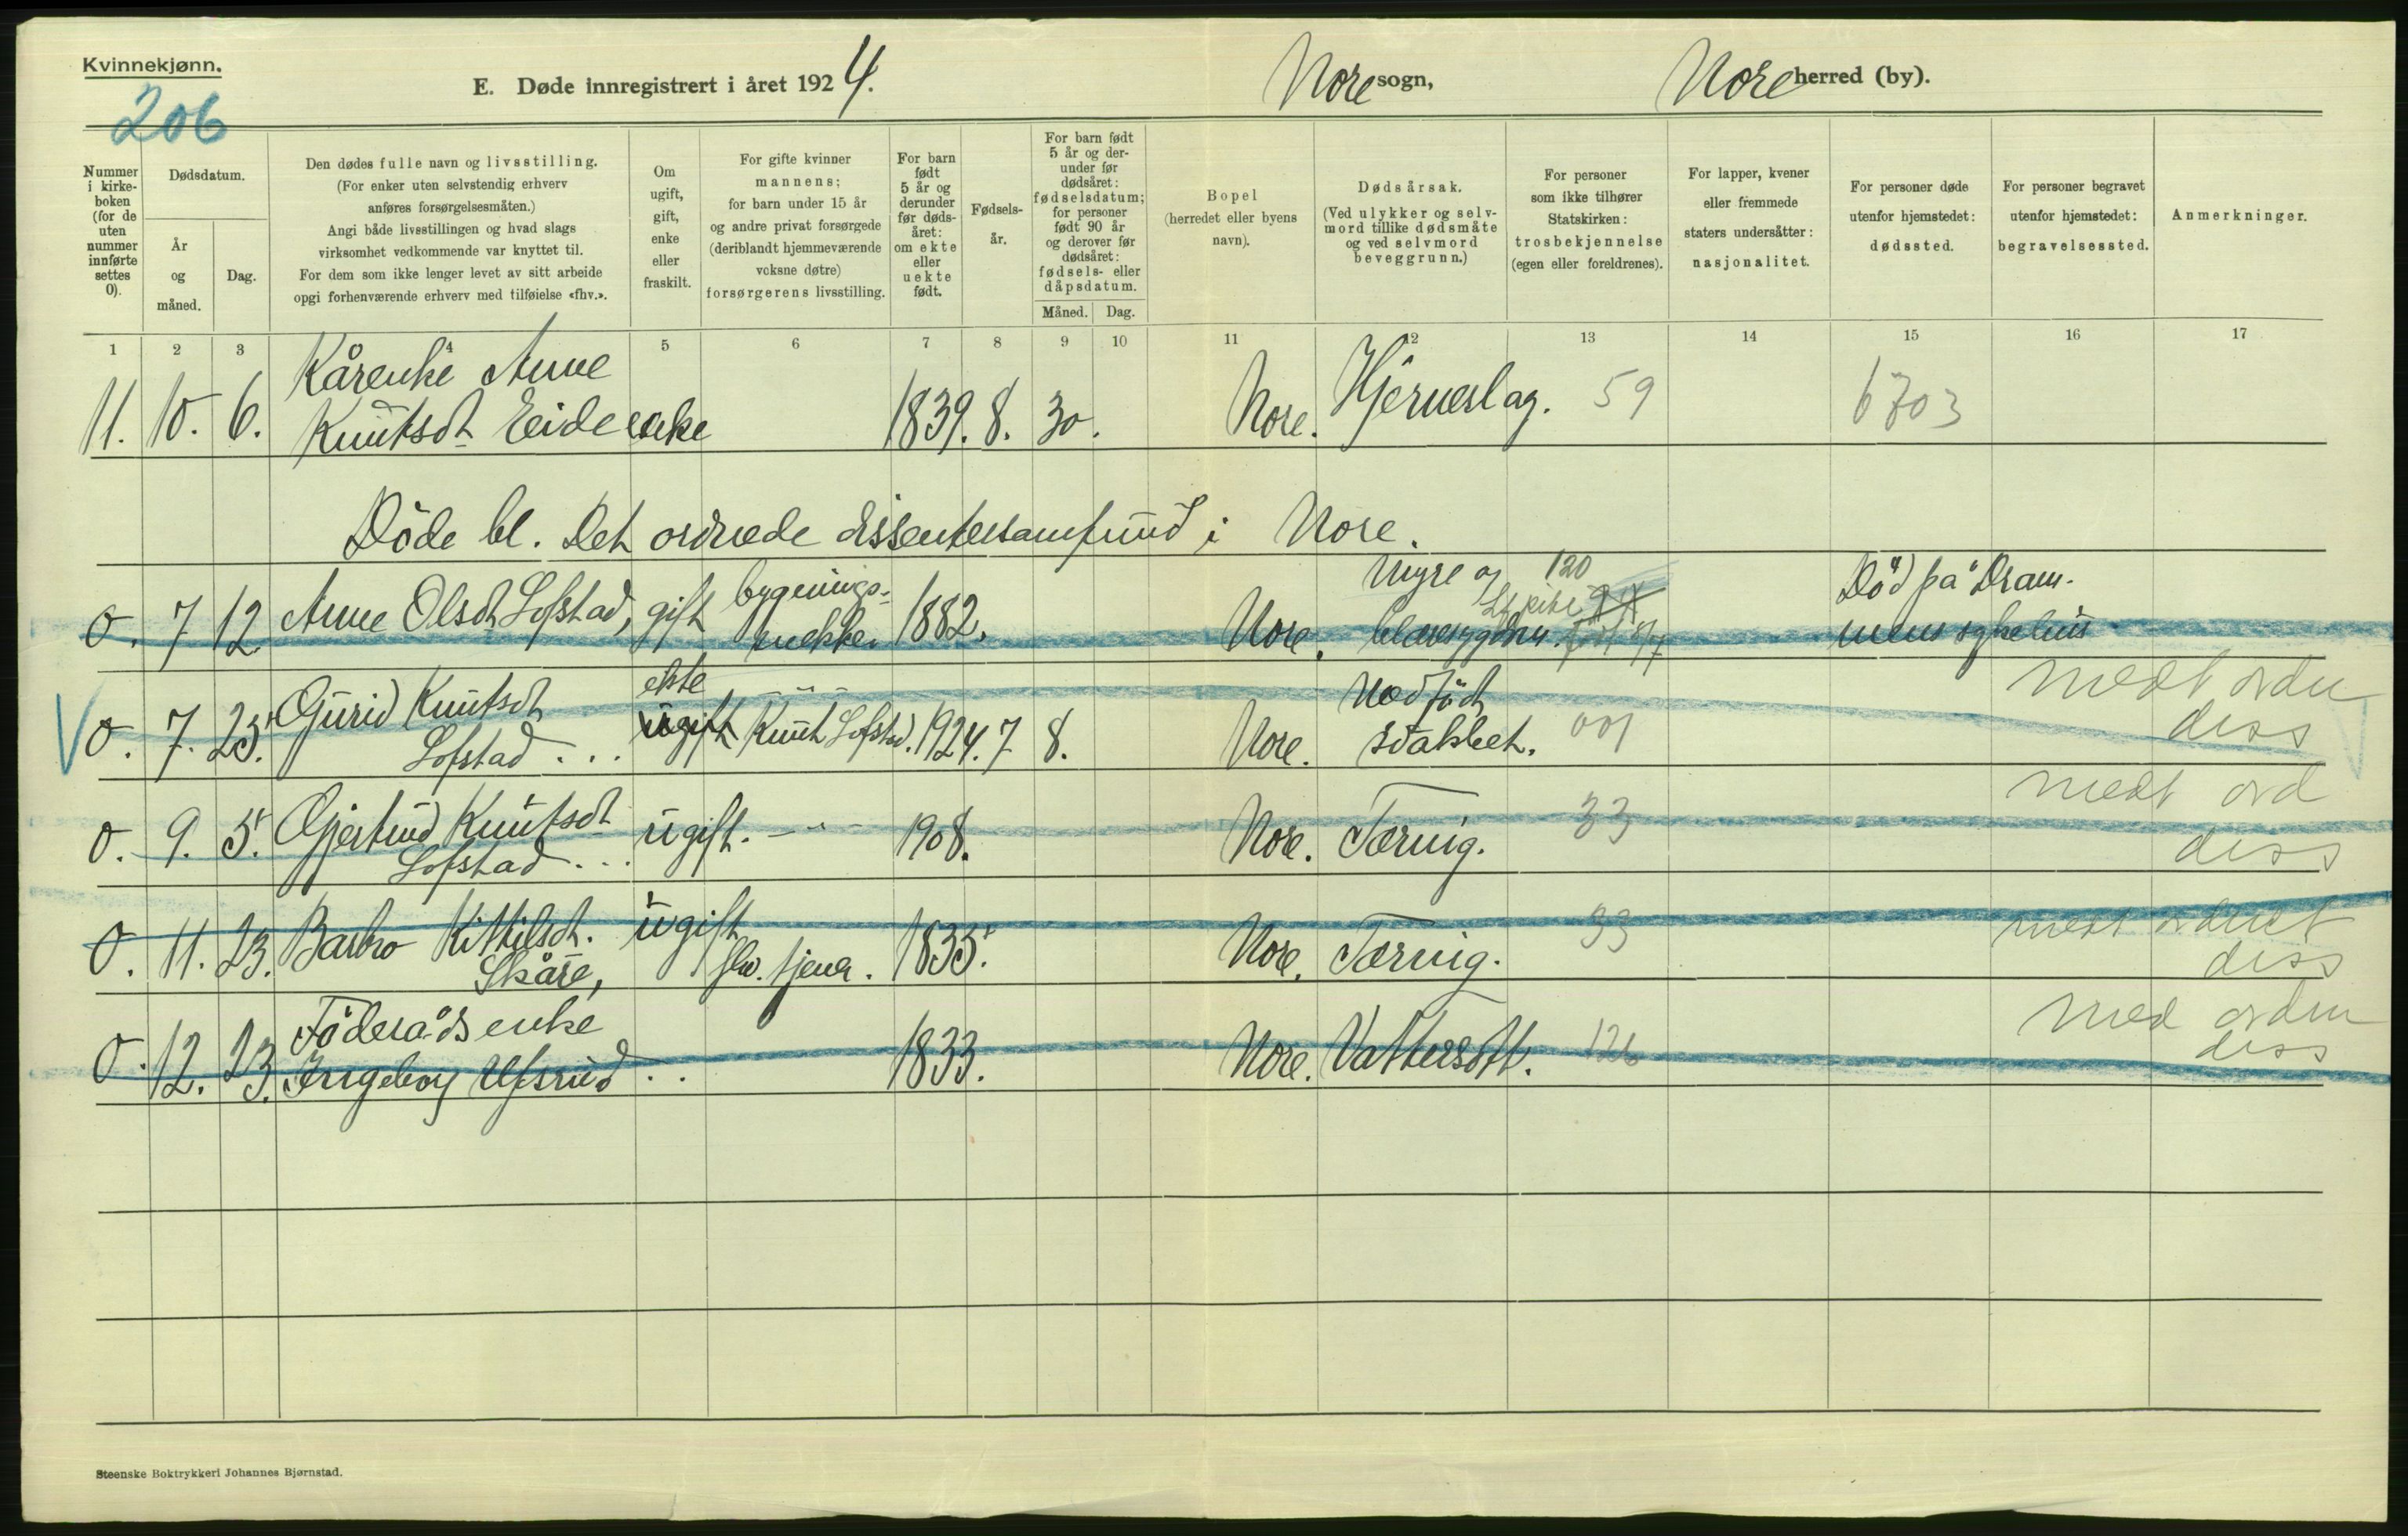 Kvinnekjønn.
206
E. Døde innregistrert i året 1924.
Nore sogn,
Nore herred (by).
Nummer i kirke- boken (for de uten nummer innførte settes 0).
Dødsdatum.
År og måned.
Dag.
Den dødes fulle navn og livsstilling.
(For enker uten selvstendig erhverv
anføres forsørgelsesmåten.)
Angi både livsstillingen og hvad slags
virksomhet vedkommende var knyttet til.
For dem som ikke lenger levet av sitt arbeide
opgi forhenværende erhverv med tilføielse «fhv.».
Om ugift, gift, enke eller fraskilt.
For gifte kvinner
mannens;
for barn under 15 år
og andre privat forsørgede
(deriblandt hjemmeværende
voksne døtre)
forsørgerens livsstilling.
For barn født 5 år og derunder før døds- året: om ekte eller uekte født.
Fødsels- år.
For barn født 5 år og der- under før dødsåret: fødselsdatum; for personer født 90 år og derover før dødsåret: fødsels- eller dåpsdatum.
Måned.
Dag.
Bopel
(herredet eller byens
navn).
Dødsårsak.
(Ved ulykker og selv-
mord tillike dødsmåte
og ved selvmord
beveggrunn.)
For personer
som ikke tilhører
Statskirken:
trosbekjennelse
(egen eller foreldrenes).
For lapper, kvener
eller fremmede
staters undersåtter:
nasjonalitet.
For personer døde
utenfor hjemstedet:
dødssted.
For personer begravet
utenfor hjemstedet:
begravelsessted.
Anmerkninger.
1 2 3 4 5 6 7 8 9 10 11 12 13 14 15 16 17
Kårenke Anne
11. 10. 6. Knutsdt Eide enke 1839. 8. 30. Nore. Hjerneslag. 59 6703
Døde bl. Det ordnede dissentersamfund i Nore.
0. 7 12 Anne Olsdt Lofstad, gift bygnings- snekker 1882. Nore. Nyre og blæresygdom. 120 Død på Dram- mens sykehus
0. 7. 23. Gurid Knutsdt Lofstad ... ekte ugift Knut Lofstad. 1924. 7 8. Nore. Nedfødt svakhet. 001 medl ordn diss
0. 9. 5. Gjertrud Knutsdt Lofstad ... ugift. -"- 1908. Nore. Tæring. 33 medl ord diss
0. 11. 23. Barbro Kittilsdt. Skåre, ugift fhv. tjener. 1835. Nore. Tæring. 33 medl ordnet diss
0. 12. 23. Føderåds enke Ingeborg Ufsrud .. 1833. Nore. Vattersott. 126 med ordn diss
Steenske Boktrykkeri Johannes Bjørnstad.